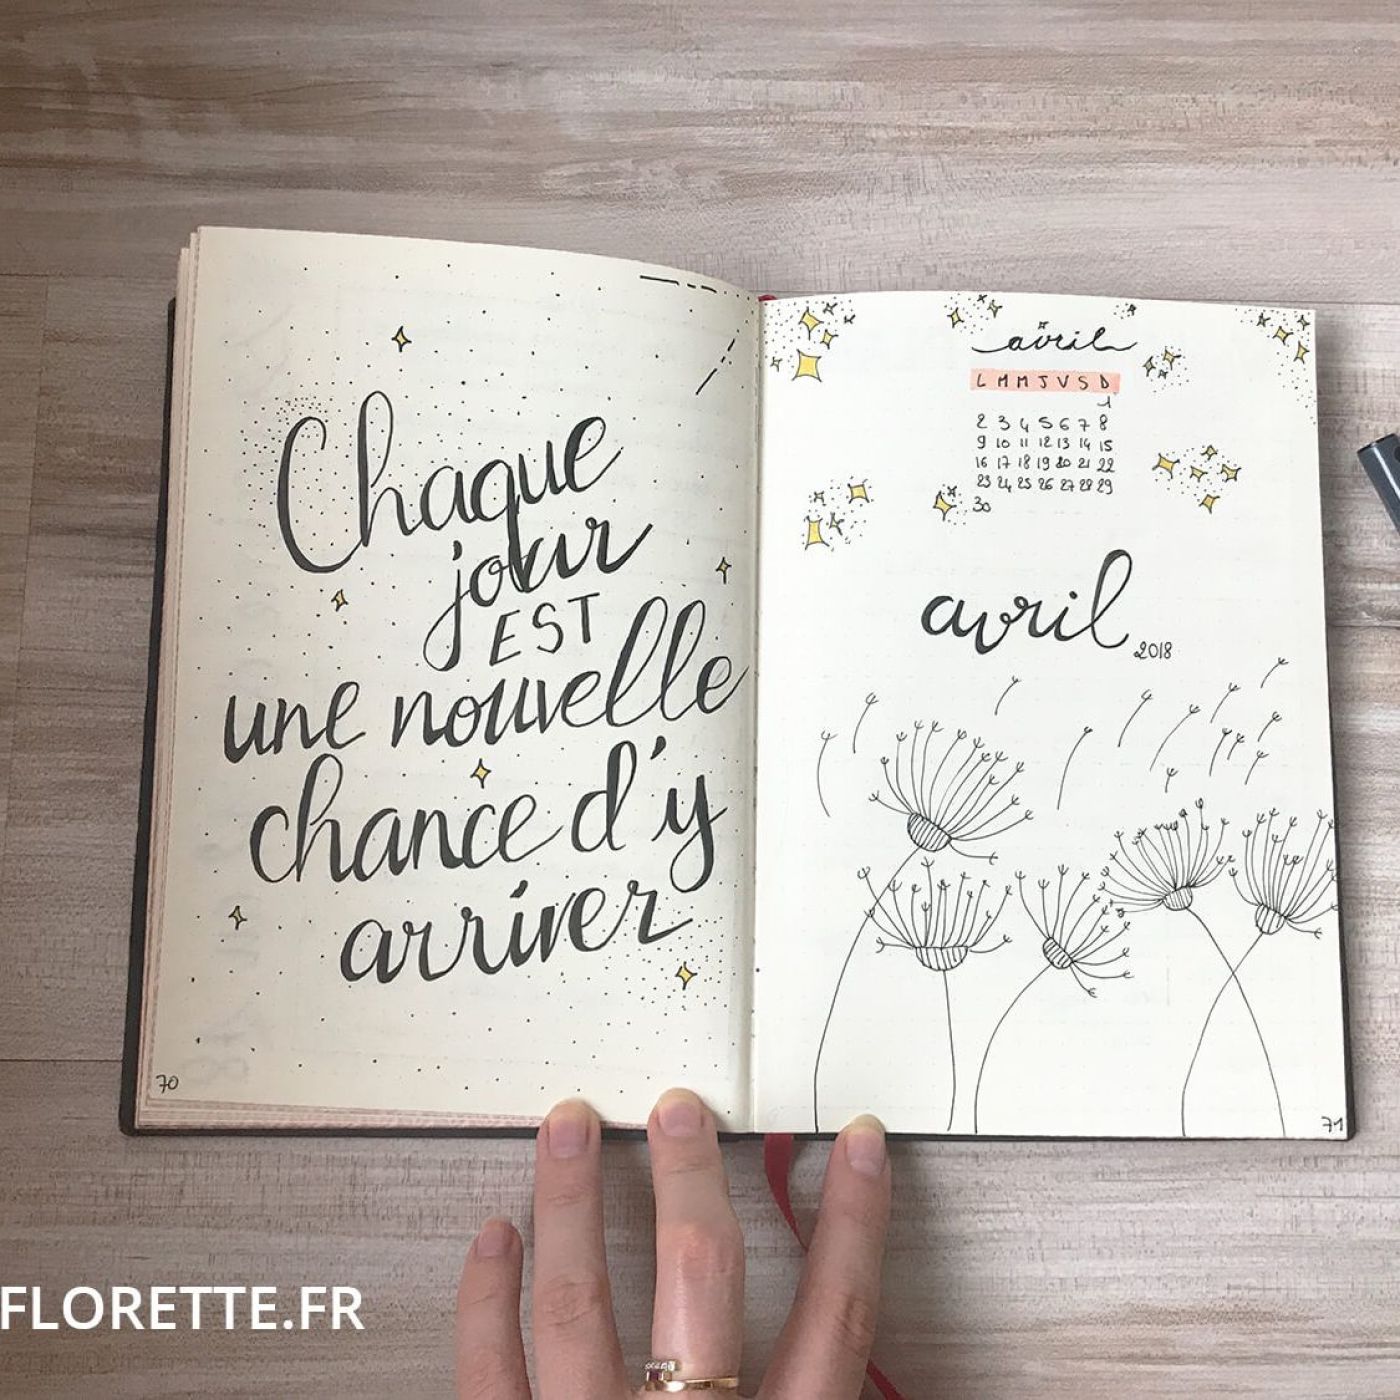 Chaque
jour
EST
une nouvelle
chance d'y
arriver
70
avril
L M M J V S D
1
2 3 4 5 6 7 8
9 10 11 12 13 14 15
16 17 18 19 20 21 22
23 24 25 26 27 28 29
30
avril
2018
71
FLORETTE.FR